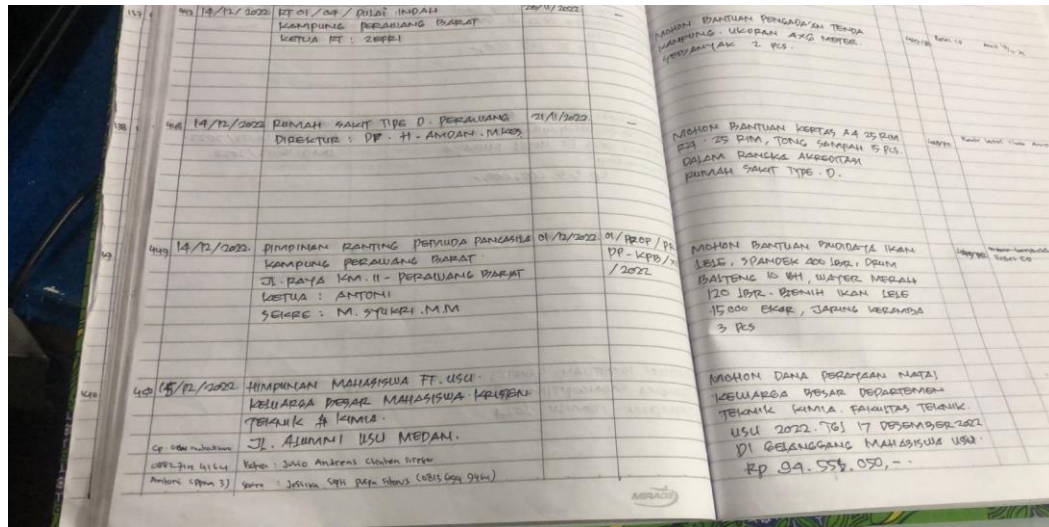 137 14/12/2022 RT 01 / 04 / PULAI INDAH 28/11/2022 —
KAMPUNG PERAWANG BARAT
KETUA RT : ZEFRI
MOHON BANTUAN PENGADA'AN TENDA
KAMPUNG. UKURAN 4X6 METER.
SEBANYAK 2 PCS.
138 14/12/2022 RUMAH SAKIT TIPE D. PERAWANG 21/11/2022 —
DIREKTUR : DR. H. AMDAN. M.KES
MOHON BANTUAN KERTAS A4 25 RIM
F4. 25 RIM, TONG SAMPAH 5 PCS.
DALAM RANGKA AKREDITASI
RUMAH SAKIT TYPE. D.
449 14/12/2022 PIMPINAN RANTING PEMUDA PANCASILA 01/12/2022 01/PROP/
KAMPUNG PERAWANG BARAT. DP-KPB/
JL. RAYA KM. 11 - PERAWANG BARAT /2022
KETUA : ANTONI
SEKRE : M. SYUKRI. M.M
MOHON BANTUAN BUDIDAYA IKAN
LELE, SPANDEK 400 LBR, DRUM
10 BH, WAYER MERAH
120 LBR. BENIH IKAN LELE
15000 EKOR, JARING KERAMBA
3 PCS
140 /12/2022 HIMPUNAN MAHASISWA FT. USU.
KELUARGA BESAR MAHASISWA KRISTEN
TEKNIK KIMIA.
JL. ALUMNI USU MEDAN.
Ketua : Andreas
Antoni : Jessica (0813 694 9461)
MOHON DANA PERAYAAN NATAL
KELUARGA BESAR DEPARTEMEN
TEKNIK KIMIA. FAKULTAS TEKNIK.
USU 2022. TGL 17 DESEMBER 2022
DI GELANGGANG MAHASISWA USU.
Rp 94.554.050,-.
MIRAGE